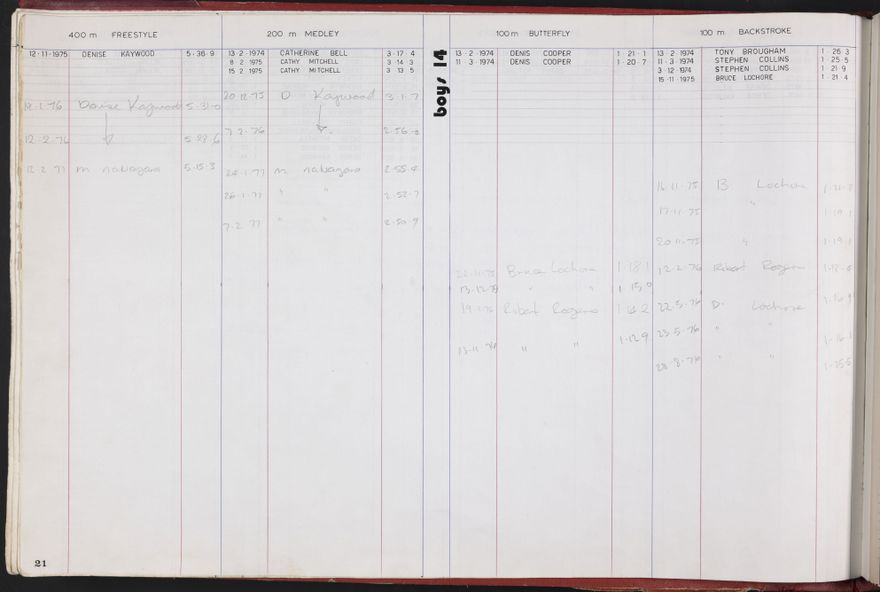 400 m FREESTYLE
12·11·1975 DENISE KAYWOOD 5·36·9
Denise Kaywood 5·31·0
12·2·76
12 2 77 m nabagara 5·15·3
200 m MEDLEY
13·2·1974 CATHERINE BELL 3·17·4
8 2 1975 CATHY MITCHELL 3 14 3
15 2 1975 CATHY MITCHELL 3 13 5
20 12 75 D Kaywood 3·1·7
7 2·76 2·56·
·1·77 m nabagara 2·55·4
26·1·77 " " 2 52·7
7·2 77 " " 2·50·9
boys 14
100 m BUTTERFLY
13·2·1974 DENIS COOPER 1·21·1
11·3·1974 DENIS COOPER 1·20·7
Bruce Lochore 1·18 1
13·12· " " 1 15 0
Robert Rogers
13·11·76 " " 1·12 9
100 m BACKSTROKE
13·2·1974 TONY BROUGHAM 1·26 3
11·3·1974 STEPHEN COLLINS 1·25·5
3·12·1974 STEPHEN COLLINS 1 21 9
15·11·1975 BRUCE LOCHORE 1·21·4
16·11·75 B Lochore
17·11·75 " 1·19·1
20 11·75 " 1·19·1
12·2·76 Robert Rogers
22·5·76 D· Lochore
23·5·76 " " 1·16·1
28·8·76 " " 1·15·5
21